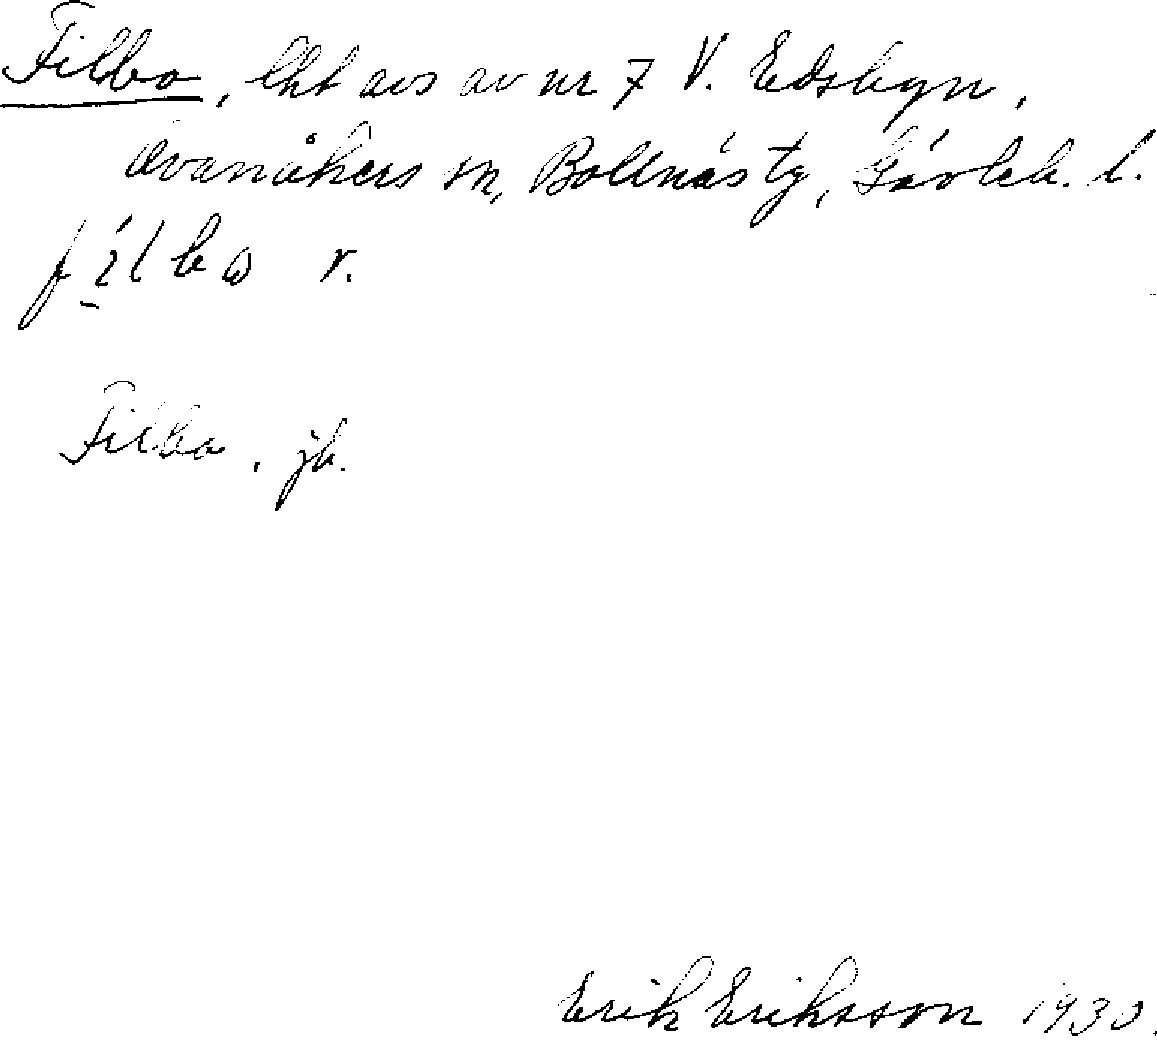 Filbo, lht avs av nr 7 V. Edsbyn,
Ovanåkers sn, Bollnäs tg, Gävleb. l.
fílbω r.
Filbo, jb.
Erik Eriksson 1930.